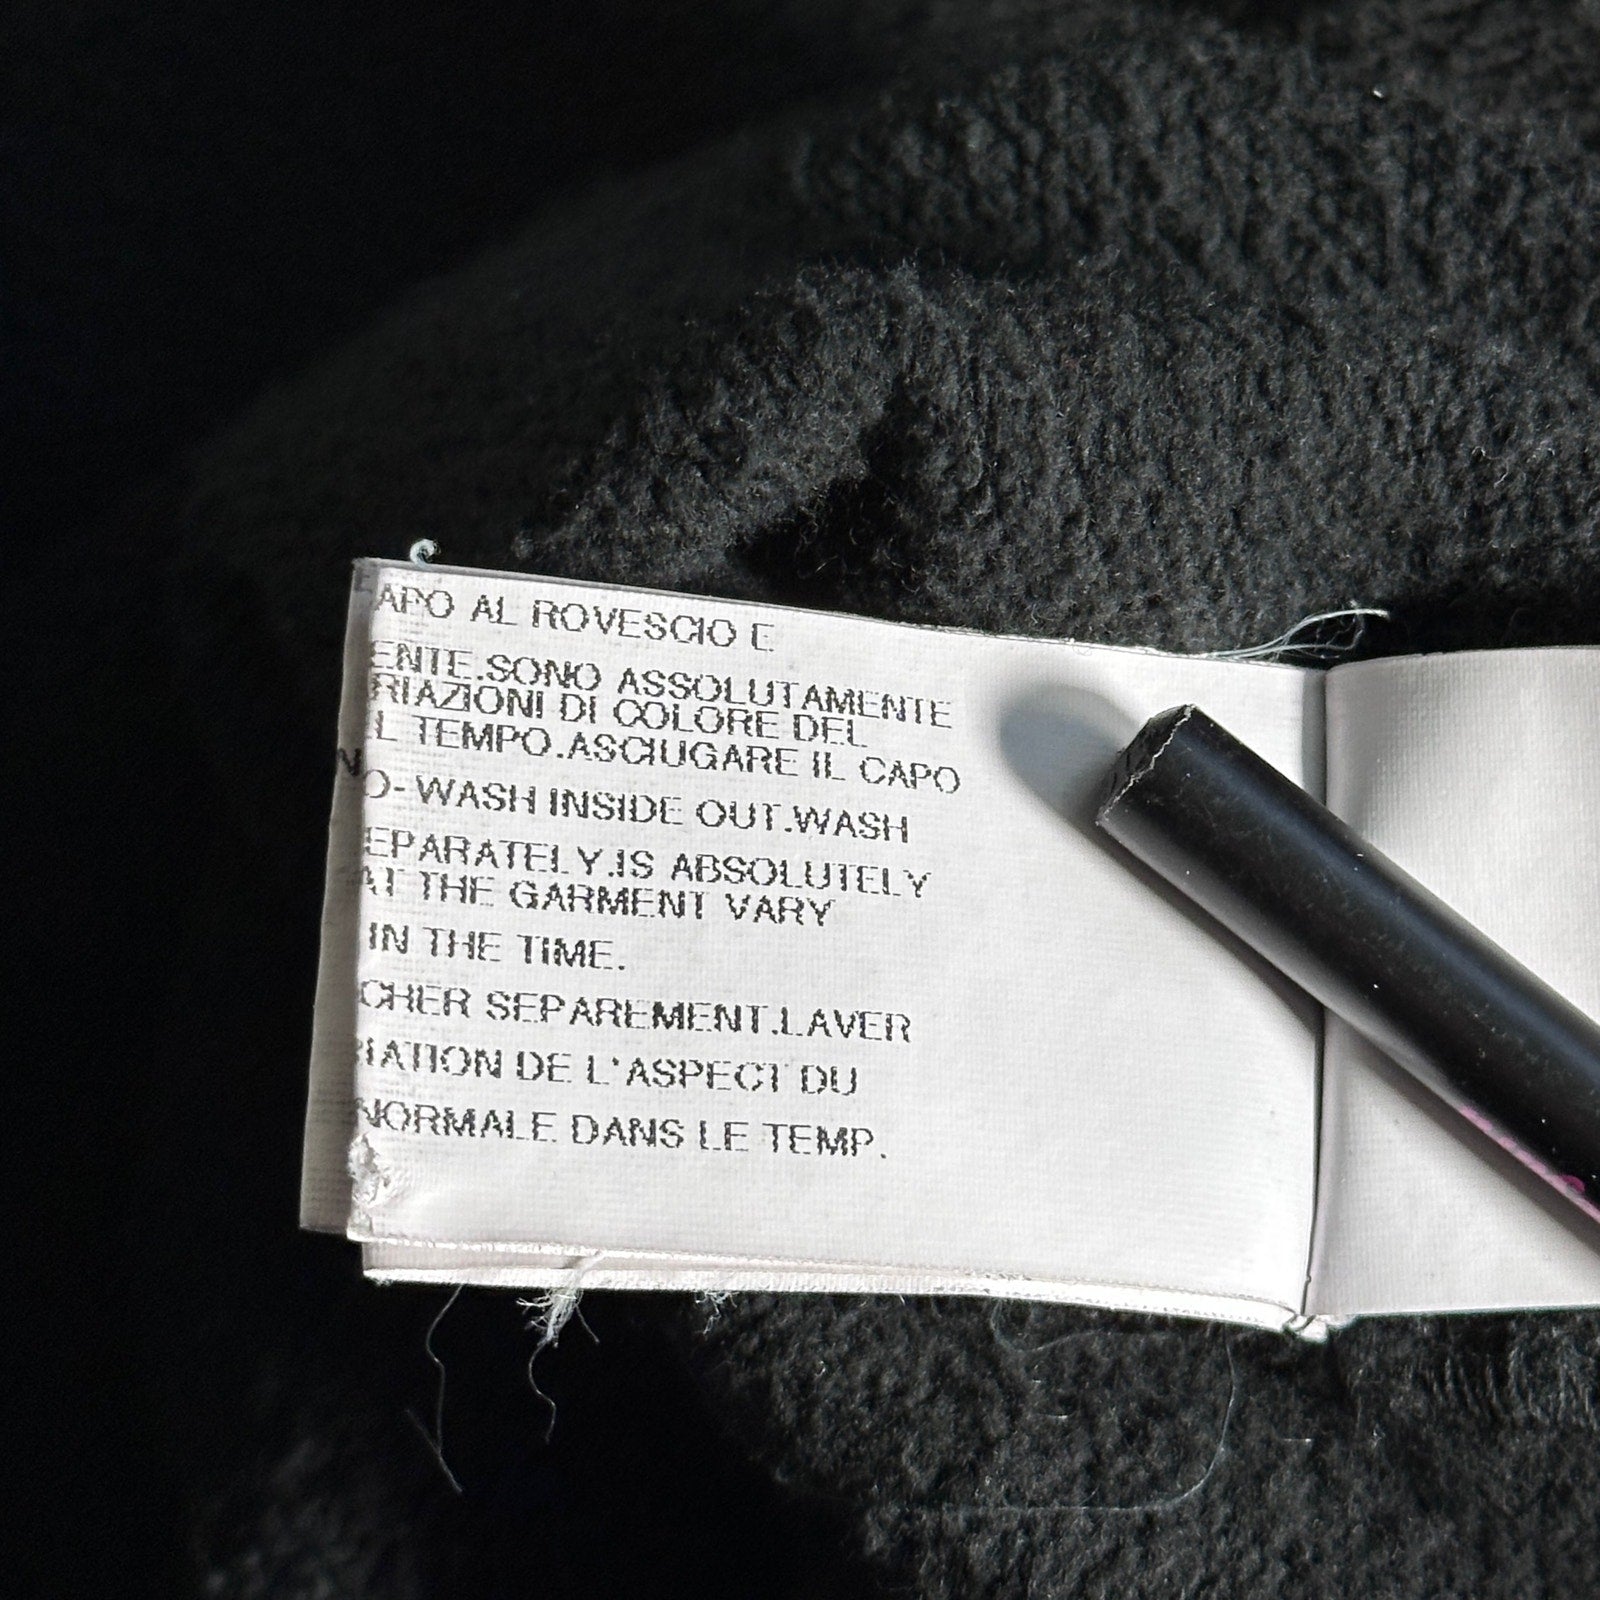 APO AL ROVESCIO E
ENTE.SONO ASSOLUTAMENTE
RIAZIONI DI COLORE DEL
IL TEMPO.ASCIUGARE IL CAPO
NO- WASH INSIDE OUT.WASH
EPARATELY.IS ABSOLUTELY
AT THE GARMENT VARY
IN THE TIME.
CHER SEPAREMENT.LAVER
IATION DE L'ASPECT DU
NORMALE DANS LE TEMP.